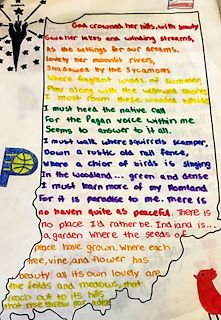 God crowned her hills with beauty
Gave her lakes and winding streams,
As the settings for our dreams.
Lovely her moonlit rivers,
Shadowed by the Sycamores
Where fragrant winds of summer
Play along with the willowed shores
I must roam these wooded
I must heed the native call
For the Pagan voice within me
Seems to answer to it all.
I must walk where squirrels scamper,
Down a rustic old rail fence,
Where a choir of birds is singing
In the woodland... green and dense
I must learn more of my homland
For it is paradise to me. there is
no haven quite as peaceful. There is
no place I'd rather be. Indiana is...
a garden where the seeds of
peace have grown. Where each
tree, vine, and flower has
beauty all its own. Lovely are
the fields and medows, that
reach out to its hills
that rise